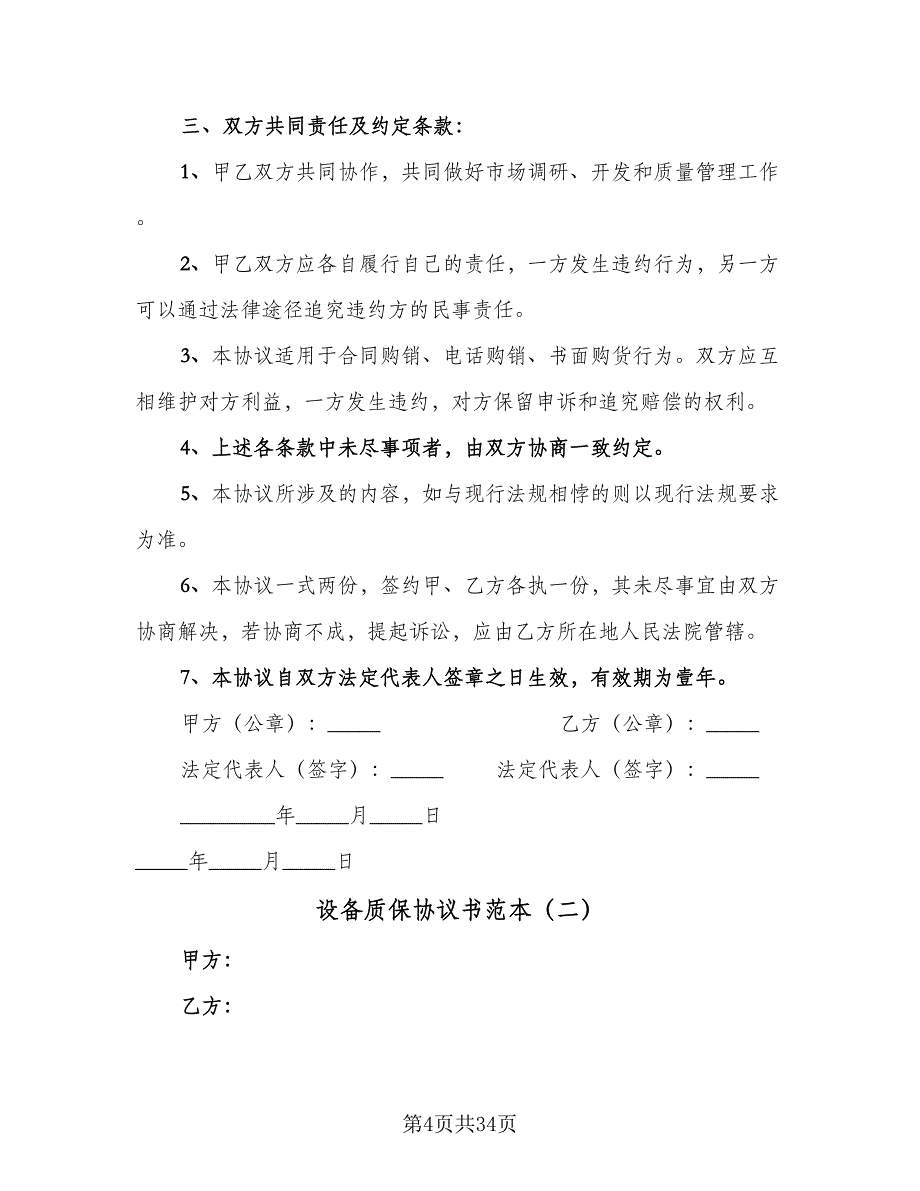 三、双方共同责任及约定条款：
1、甲乙双方共同协作，共同做好市场调研、开发和质量管理工作
。
2、甲乙双方应各自履行自己的责任，一方发生违约行为，另一方
可以通过法律途径追究违约方的民事责任。
3、本协议适用于合同购销、电话购销、书面购货行为。双方应互
相维护对方利益，一方发生违约，对方保留申诉和追究赔偿的权利。
4、上述各条款中未尽事项者，由双方协商一致约定。
5、本协议所涉及的内容，如与现行法规相悖的则以现行法规要求
为准。
6、本协议一式两份，签约甲、乙方各执一份，其未尽事宜由双方
协商解决，若协商不成，提起诉讼，应由乙方所在地人民法院管辖。
7、本协议自双方法定代表人签章之日生效，有效期为壹年。
甲方（公章）：_____ 乙方（公章）：_____
法定代表人（签字）：_____ 法定代表人（签字）：_____
_________年_____月_____日
_____年_____月_____日
设备质保协议书范本（二）
甲方：
乙方：
第4页共34页